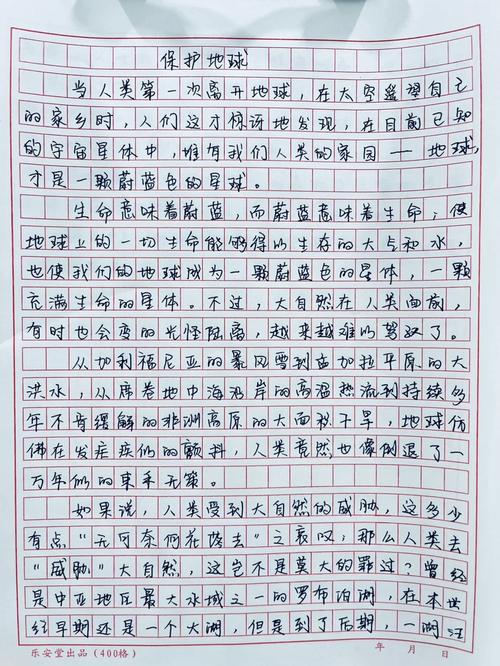 保护地球
当人类第一次离开地球,在太空遥望自己
的家乡时,人们这才惊讶地发现,在目前已知
的宇宙星体中,唯有我们人类的家园——地球,
才是一颗蔚蓝色的星球。
生命意味着蔚蓝,而蔚蓝意味着生命;使
地球上的一切生命能够得以生存的大气和水,
也使我们的地球成为一颗蔚蓝色的星体,一颗
充满生命的星体。不过,大自然在人类面前,
有时也会变的光怪陆离,越来越难以驾驭了。
从加利福尼亚的暴风雪到孟加拉平原的大
洪水,从席卷地中海沿岸的高温热流到持续多
年不肯缓解的非洲高原的大面积干旱,地球仿
佛在发疟疾似的颤抖,人类竟然也像倒退了一
万年似的束手无策。
如果说,人类受到大自然的威胁,这多少
有点“无可奈何花落去”之哀叹;那么人类去
“威胁”大自然,这岂不是莫大的罪过?曾经
是中亚地区最大水域之一的罗布泊湖,在本世
纪早期还是一个大湖,但是到了后期,一湖汪
乐安堂出品(400格) 年 月 日